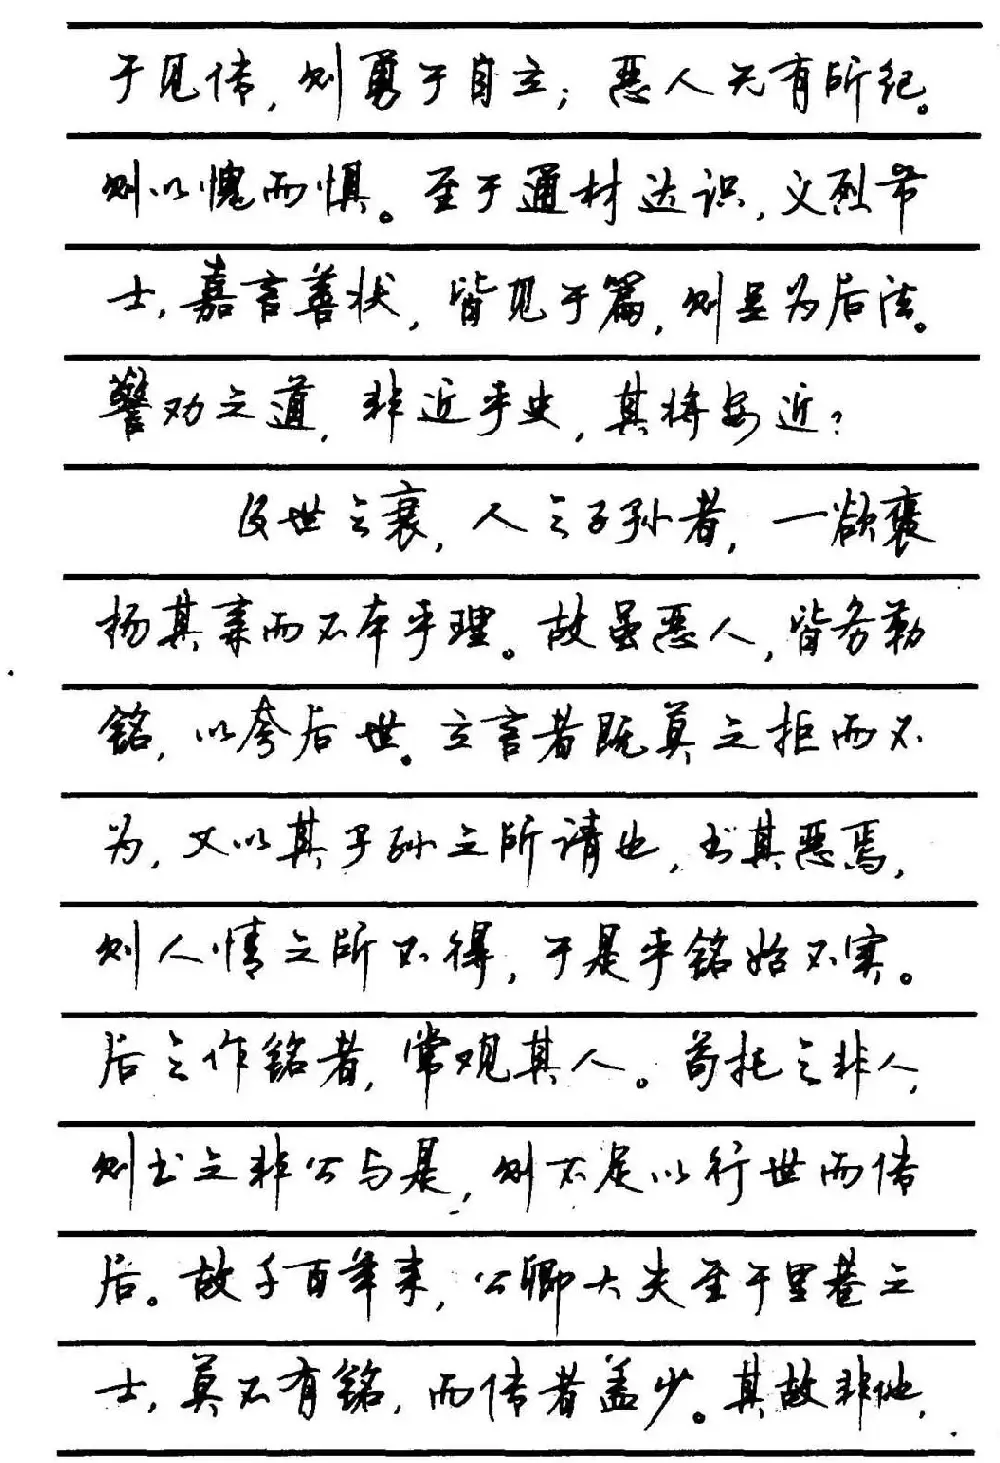 于见传，则勇于自立；恶人无有所纪。
则以愧而惧。至于通材达识，义烈节
士，嘉言善状，皆见于篇，则足为后法。
警劝之道，非近乎史，其将安近？
及世之衰，人之子孙者，一欲褒
扬其亲而不本乎理。故虽恶人，皆务勒
铭，以夸后世。立言者既莫之拒而不
为，又以其子孙之所请也，书其恶焉，
则人情之所不得，于是乎铭始不实。
后之作铭者，常观其人。苟托之非人，
则书之非公与是，则不足以行世而传
后。故千百年来，公卿大夫至于里巷之
士，莫不有铭，而传者盖少。其故非他，